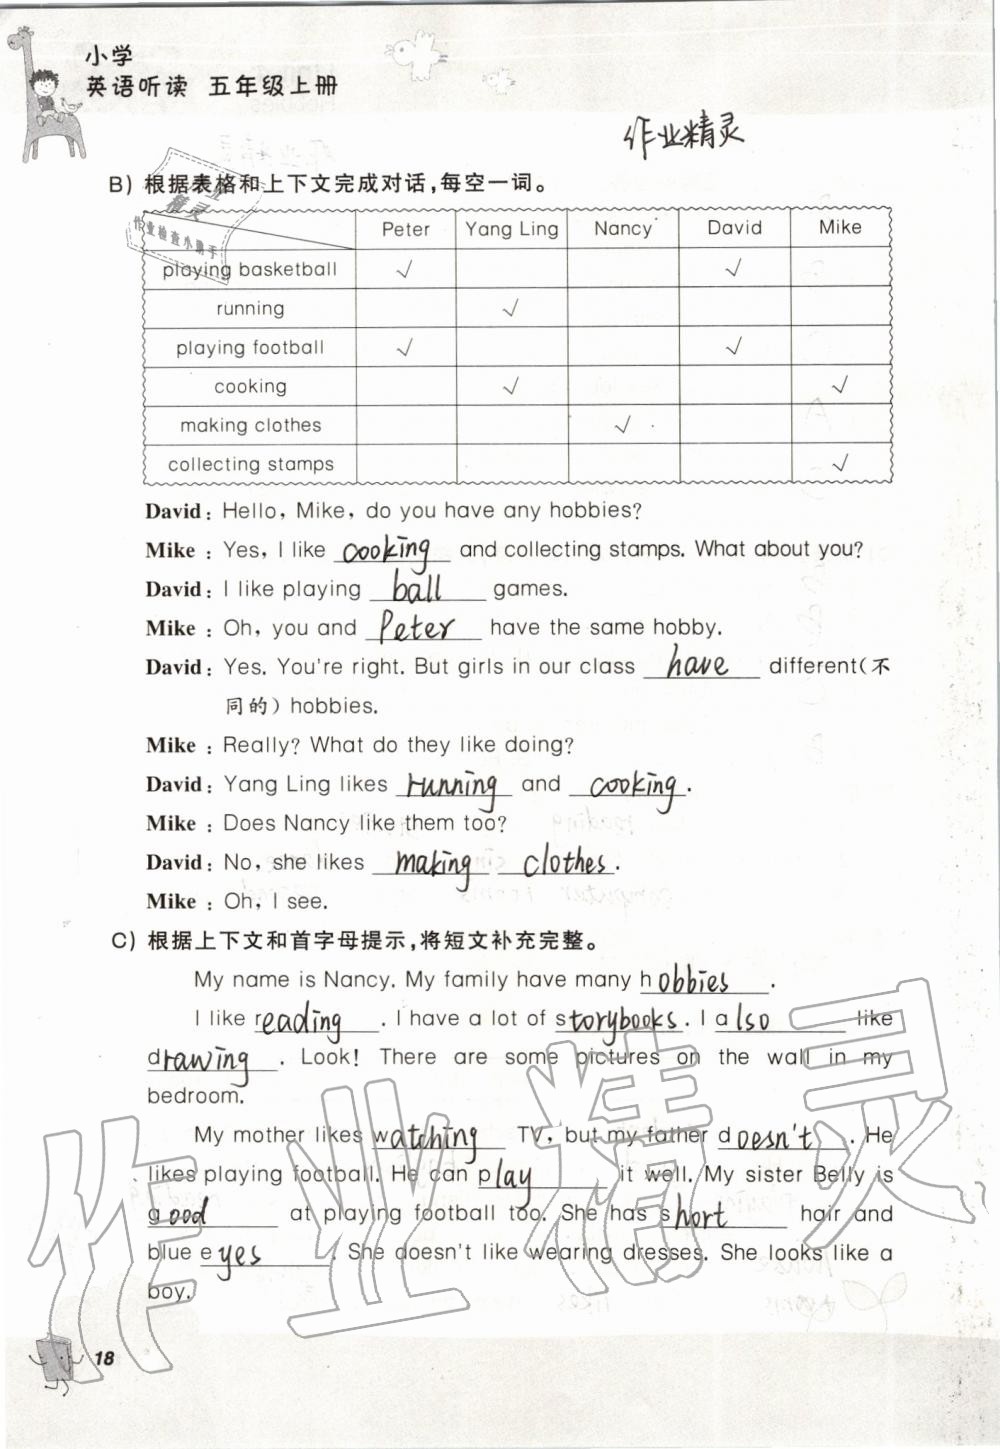 小学
英语听读 五年级上册
作业精灵
B) 根据表格和上下文完成对话,每空一词。
作业精灵
作业检查小助手
Peter Yang Ling Nancy David Mike
playing basketball √ √
running √
playing football √ √
cooking √ √
making clothes √
collecting stamps √
David: Hello, Mike, do you have any hobbies?
Mike: Yes, I like cooking and collecting stamps. What about you?
David: I like playing ball games.
Mike: Oh, you and Peter have the same hobby.
David: Yes. You're right. But girls in our class have different(不
同的) hobbies.
Mike: Really? What do they like doing?
David: Yang Ling likes running and cooking.
Mike: Does Nancy like them too?
David: No, she likes making clothes.
Mike: Oh, I see.
C) 根据上下文和首字母提示,将短文补充完整。
My name is Nancy. My family have many hobbies.
I like reading. I have a lot of storybooks. I also like
drawing. Look! There are some pictures on the wall in my
bedroom.
My mother likes watching TV, but my father doesn't. He
likes playing football. He can play it well. My sister Belly is
good at playing football too. She has short hair and
blue eyes. She doesn't like wearing dresses. She looks like a
boy.
作业精灵
18